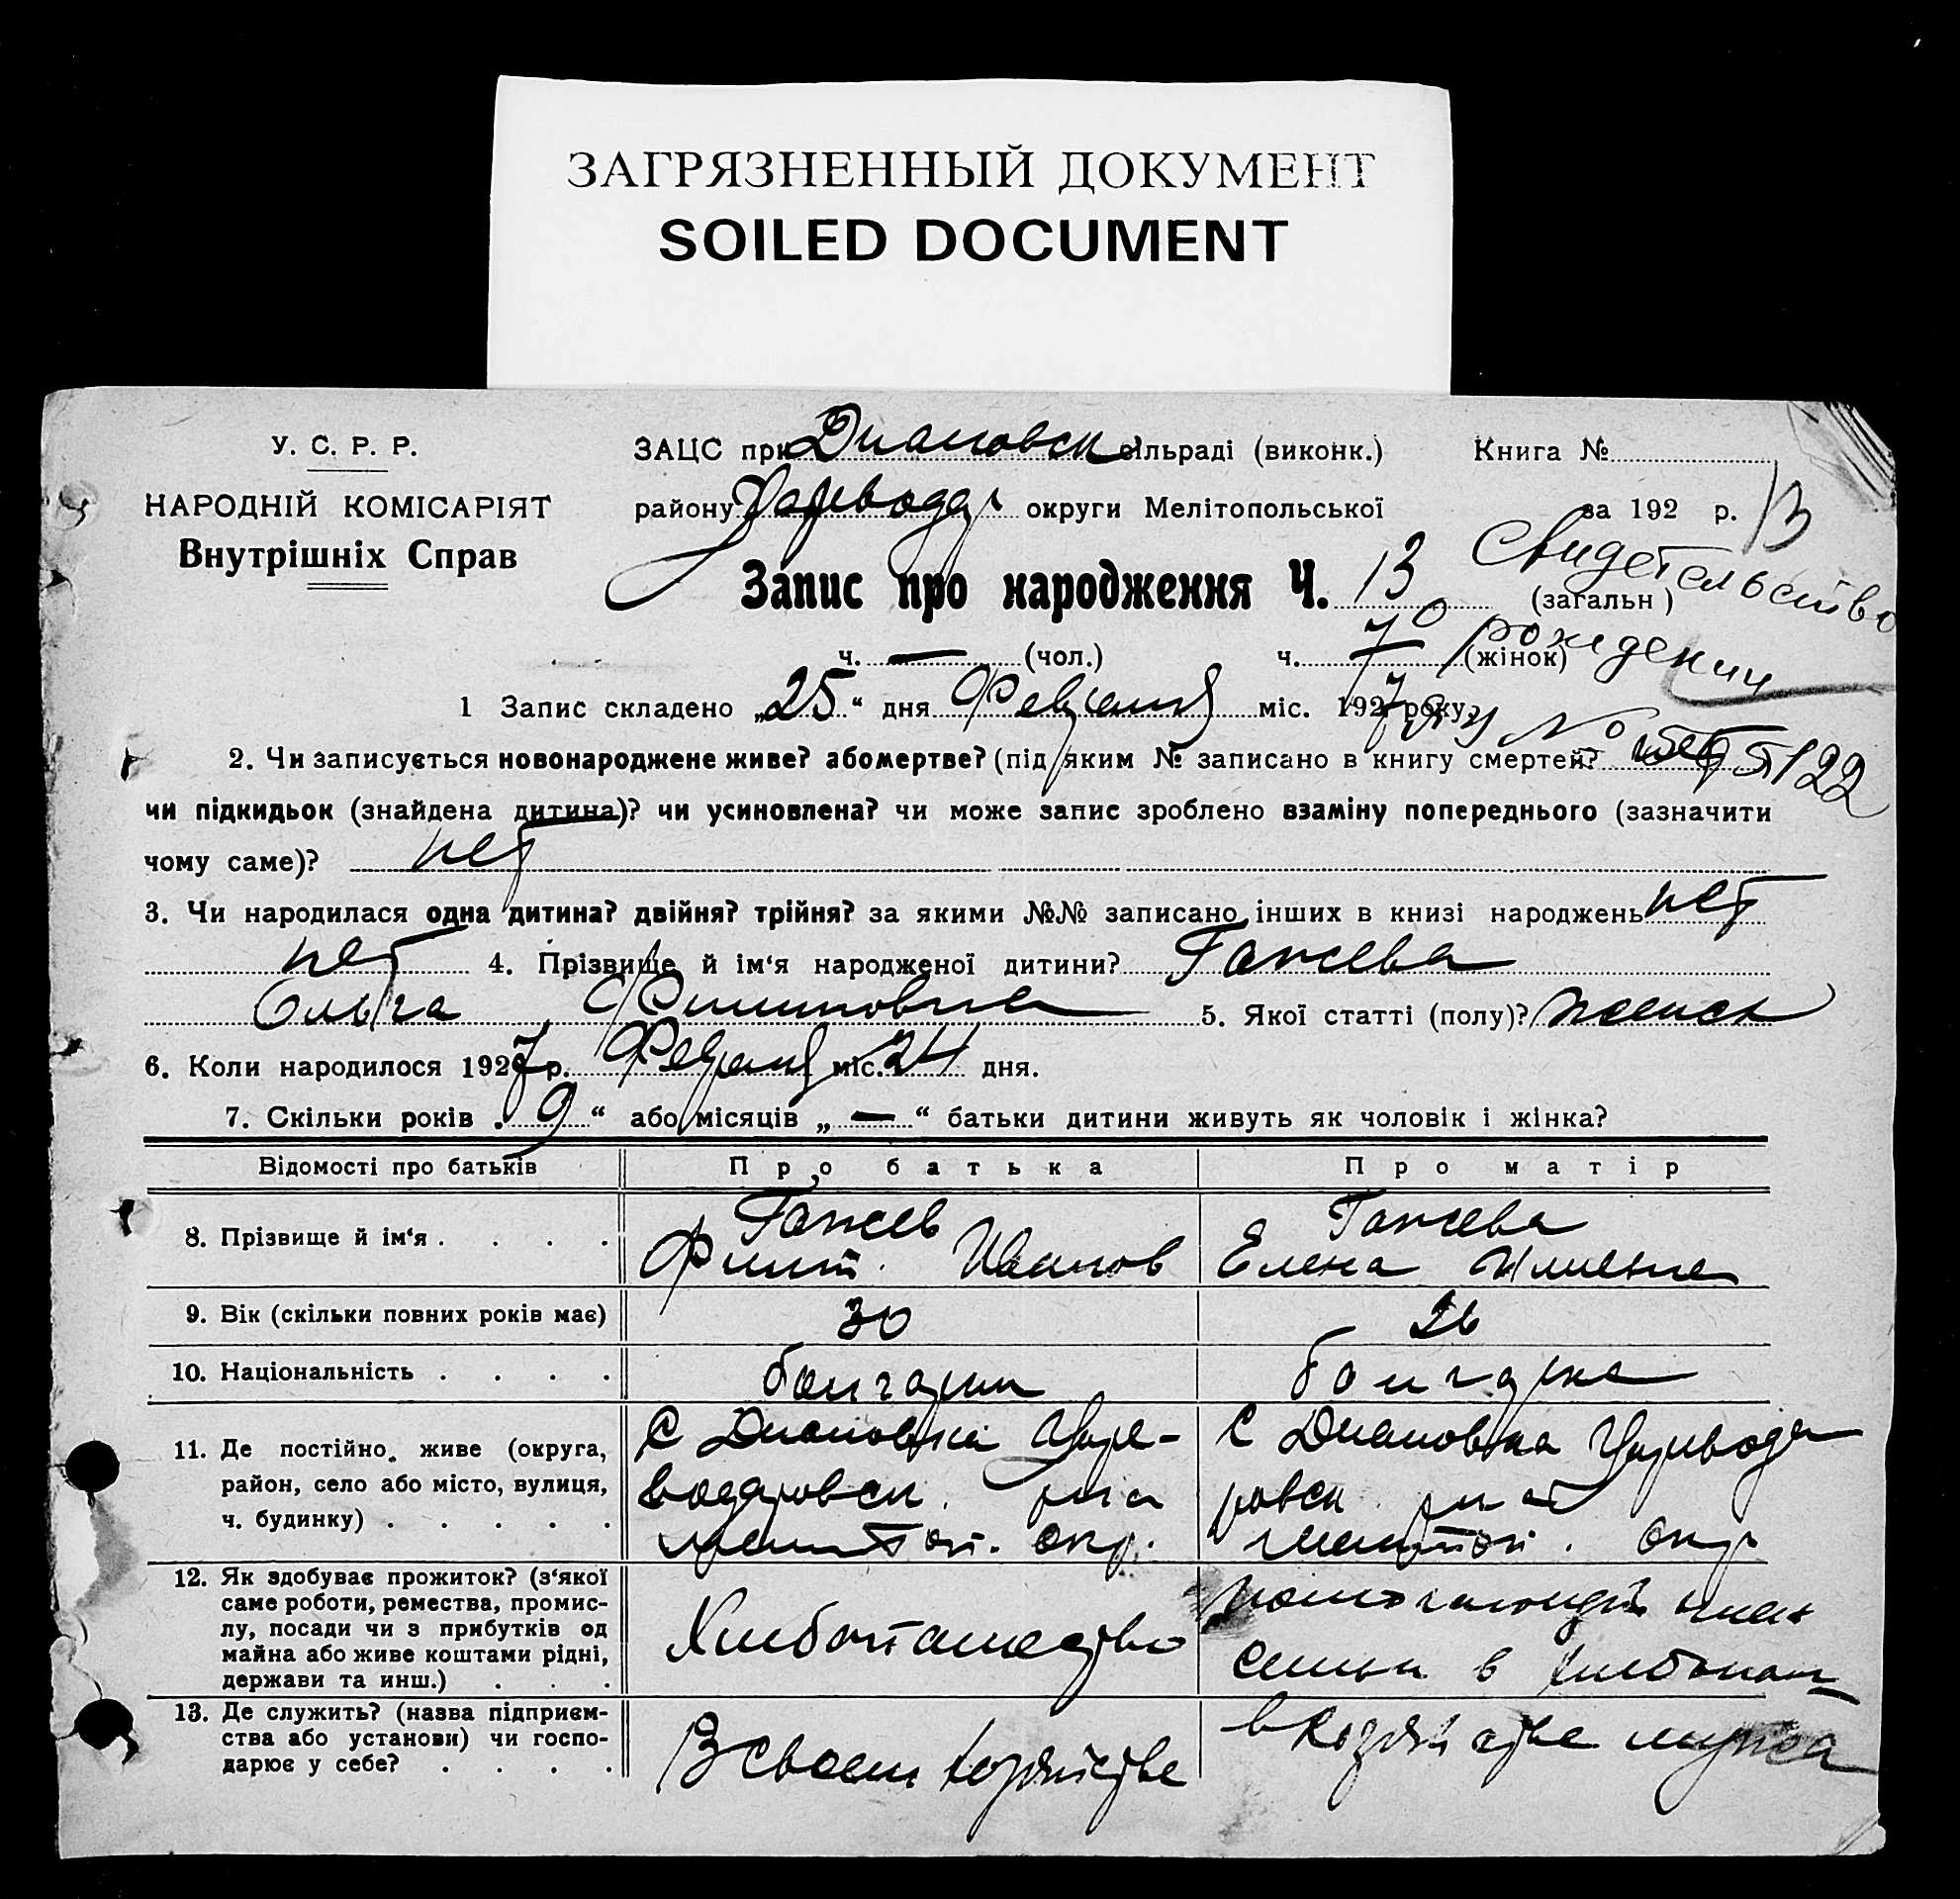 ЗАГРЯЗНЕННЫЙ ДОКУМЕНТ
SOILED DOCUMENT
У. С. Р. Р.
НАРОДНІЙ КОМІСАРІЯТ
Внутрішніх Справ
ЗАЦС при Диановск сільраді (виконк.)
району Царевода округи Мелітопольської
Книга №
за 192 р.
13
Запис про народження Ч. 13 (загальн)
Свидетельство
о рождении
ч. — (чол.) ч. 7 (жінок)
1 Запис складено „25“ дня Февраля міс. 1927 року.
№ 5122
2. Чи записується новонароджене живе? абомертве? (під яким № записано в книгу смертей? нет
чи підкидьок (знайдена дитина)? чи усиновлена? чи може запис зроблено взаміну попереднього (зазначити
чому саме)? нет
3. Чи народилася одна дитина? двійня? трійня? за якими №№ записано інших в книзі народжень нет
нет 4. Прізвище й ім‘я народженої дитини? Гажева
Ольга Филиповна 5. Якої статті (полу)? женск
6. Коли народилося 1927 р. Февраля міс. 24 дня.
7. Скільки років „9“ або місяців „—“ батьки дитини живуть як чоловік і жінка?
Відомості про батьків Про батька Про матір
8. Прізвище й ім‘я . . . .
Гажев
Филип. Иванов
Гажева
Елена
9. Вік (скільки повних років має) 30 26
10. Національність . . . . болгарин болгарка
11. Де постійно живе (округа,
район, село або місто, вулиця,
ч. будинку) . . . . .
С Диановка Царе-
водаровск. р-на
Мелитоп. окр.
С Диановка Царевода
ровск р-на
Мелитоп. окр
12. Як здобуває прожиток? (з‘якої
саме роботи, ремества, промис-
лу, посади чи з прибутків од
майна або живе коштами рідні,
держави та инш.) . . .
Хлебопашество
помогающий член
семьи в хлебопаш
13. Де служить? (назва підприєм-
ства або установи) чи госпо-
дарює у себе? . . . .
В своем хозяйстве
в хозяйстве мужа